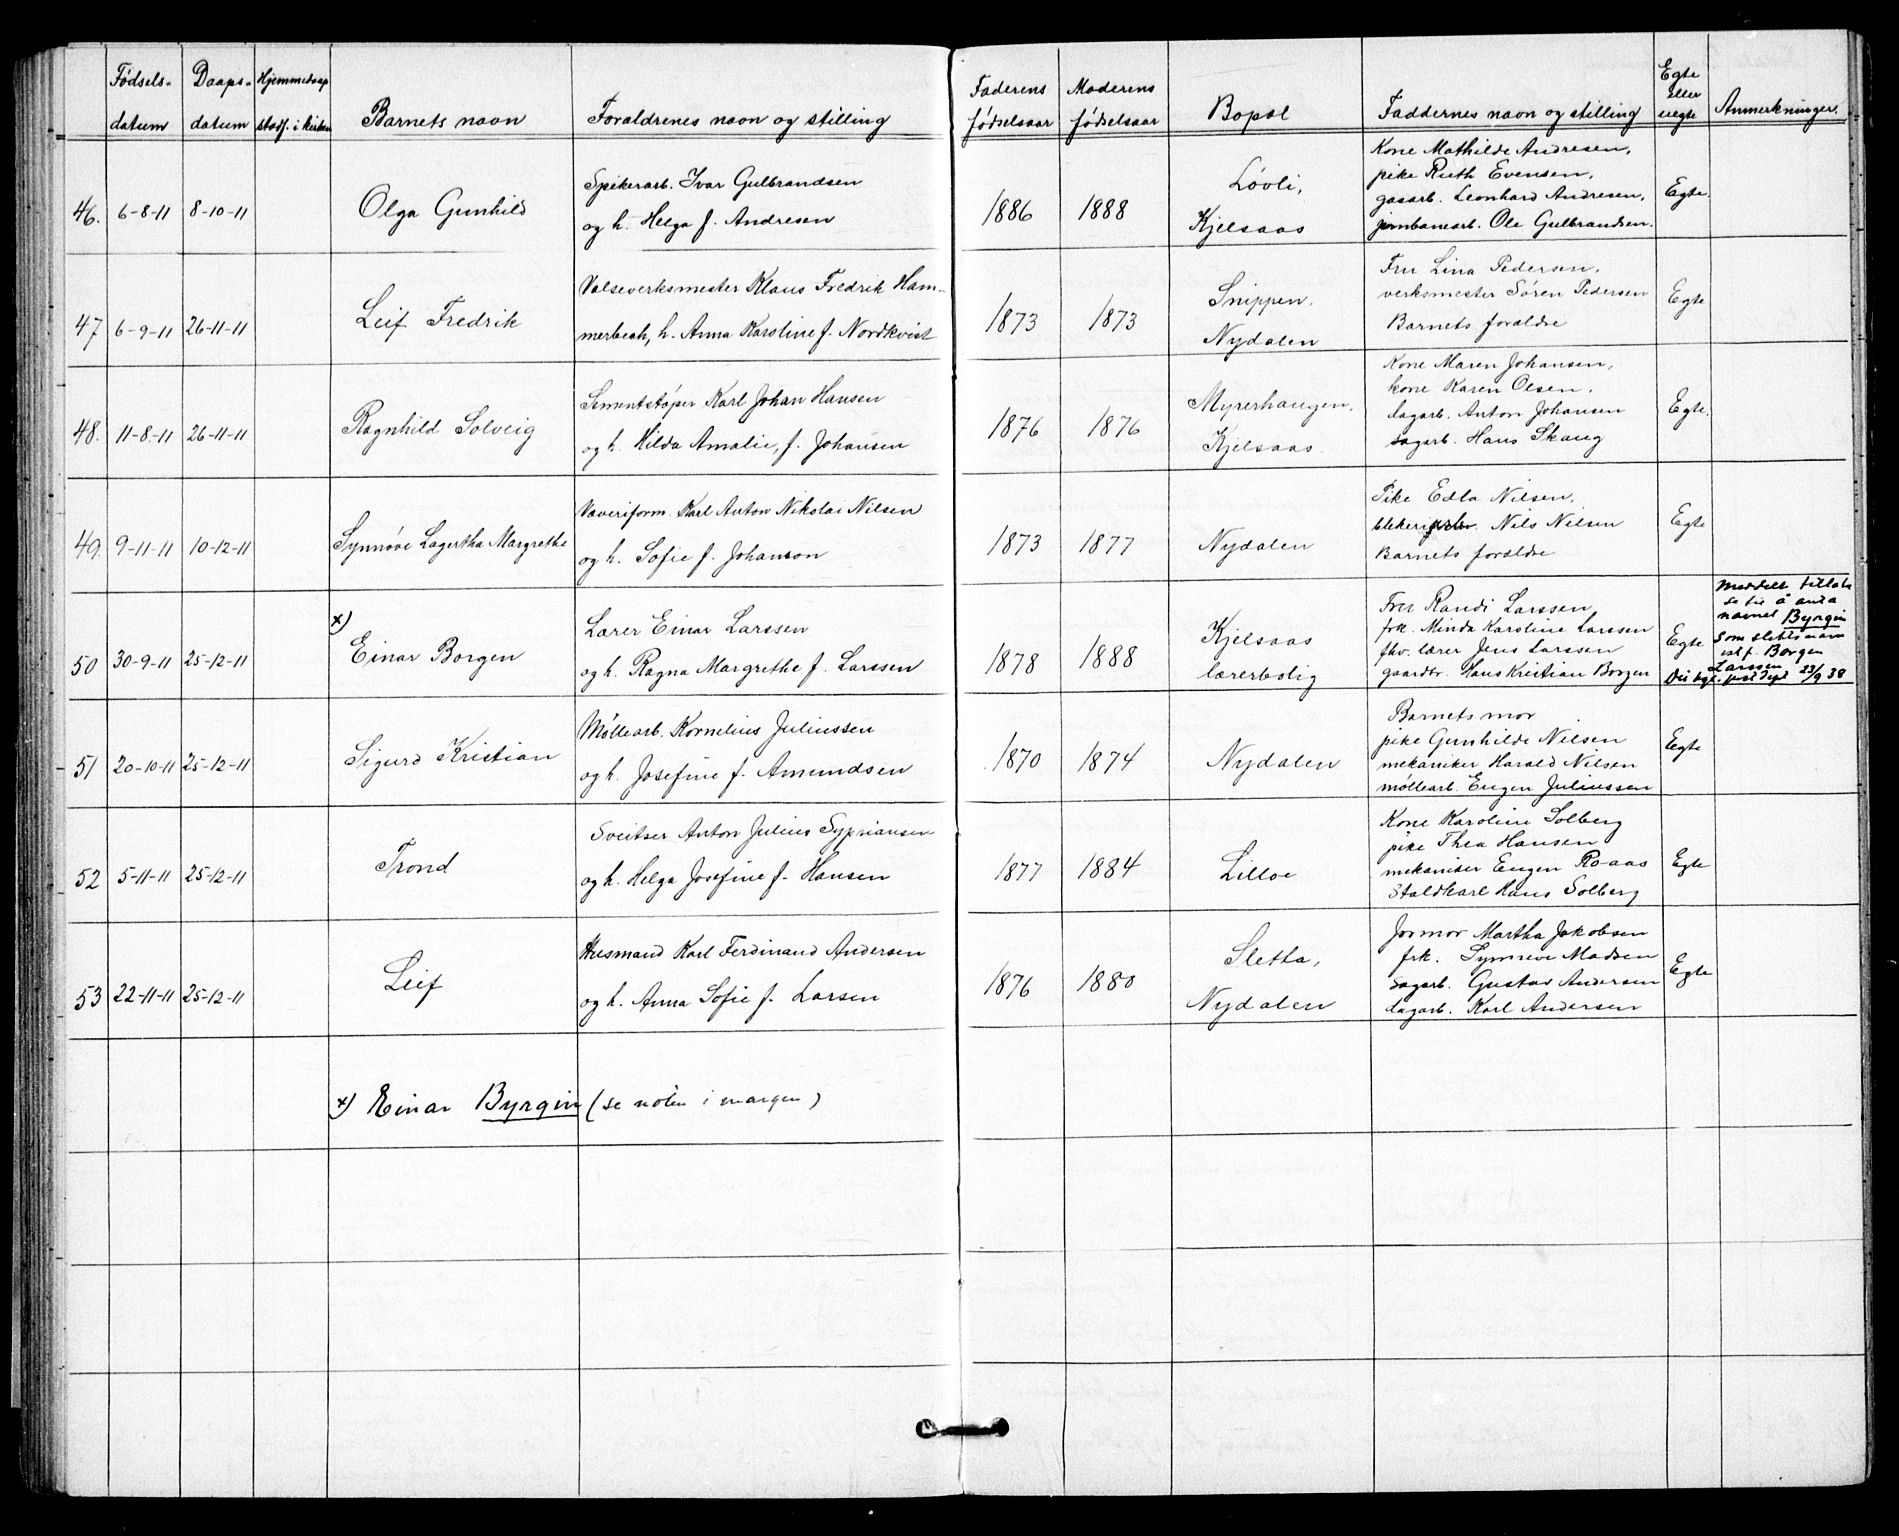 Fødsels- Daaps- Hjemmedaap Faderens Moderens Egte
datum datum stadf. i kirken Barnets navn Foraldrenes navn og stilling fødselsaar fødselsaar Bopæl Faddernes navn og stilling eller uegte Anmerkninger.
46. 6-8-11 8-10-11 Olga Gunhild
Spikerarb. Ivar Gulbrandsen
og h. Helga f. Andresen
1886 1888
Løvli,
Kjelsaas
Kone Mathilde Andresen,
pike Ruth Evensen,
gasarb. Leonhard Andresen,
jernbanearb. Ole Gulbrandsen.
Egte
47 6-9-11 26-11-11 Leif Fredrik
Valseverksmester Klaus Fredrik Ham-
merbeck, h. Anna Karoline f. Nordkvist
1873 1873
Snippen,
Nydalen
Fru Lina Pedersen,
verksmester Sören Pedersen
Barnets foraldre
Egte
48. 11-8-11 26-11-11 Ragnhild Solveig
Sementstøper Karl Johan Hansen
og h. Hilda Amalie, f. Johansen
1876 1876
Myrerhaugen,
Kjelsaas
Kone Maren Johansen,
kone Karen Olsen,
dagarb. Anton Johansen
sagarb. Hans Skaug
Egte.
49. 9-11-11 10-12-11 Synnøve Lagertha Margrethe
Væveriform. Karl Anton Nikolai Nilsen
og h. Sofie f. Johanson
1873 1877
Nydalen
Pike Edla Nilsen,
blekeriarb. Nils Nilsen
Barnets foraldre
Egte
50 30-9-11 25-12-11
x)
Einar Borgen
Lærer Einar Larssen
og h. Ragna Margrethe f. Larssen
1878 1888
Kjelsaas
lærerbolig
Fru Randi Larssen
frk. Minda Karoline Larssen
fhv. lærer Jens Larssen
gaardbr. Hans Kristian Borgen
Egte
Meddelt tillatel
se til å anta
navnet Byrgin
som slektsnavn
istf. Borgen
Larssen
Det kgl. just dept 23/9 38
51 20-10-11 25-12-11 Sigurd Kristian
Møllearb. Kornelius Juliussen
og h. Josefine f. Amundsen
1870 1874
Nydalen
Barnets mor
pike Gunhilde Nilsen
mekaniker Harald Nilsen
møllearb. Eugen Juliussen
Egte
52 5-11-11 25-12-11 Trond
Sveitser Anton Julius Sypriansen
og h. Helga Josefine f. Hansen
1877 1884
Lilloe
Kone Karoline Solberg
pike Thea Hansen
mekaniker Eugen Ro-aas
Staldkarl Hans Solberg
Egte
53 22-11-11 25-12-11 Leif
Husmand Karl Ferdinand Andersen
og h. Anna Sofie f. Larsen
1876 1880
Sletta,
Nydalen
Jormor Martha Jakobsen
frk. Synneve Madsen
sagarb. Gustav Andersen
dagarb. Karl Andersen
Egte
x) Einar Byrgin (se noten i margen)